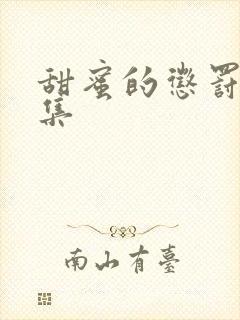 甜蜜的懲罰
集
南山有臺